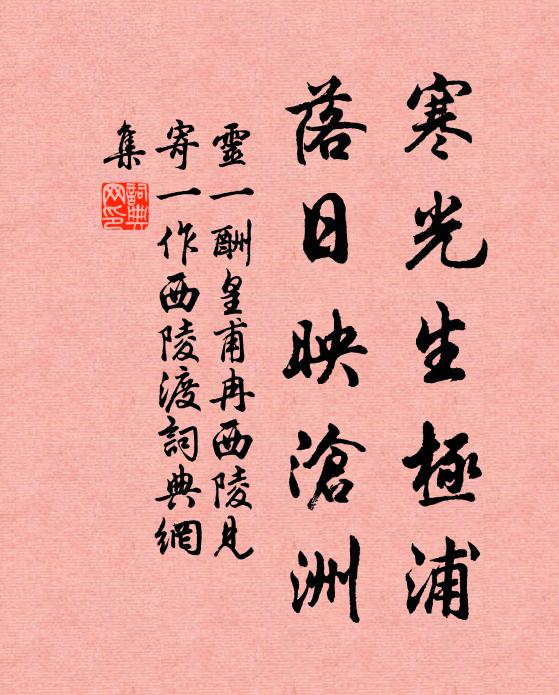 寒光生極浦
落日映滄洲
靈一酬皇甫冉西陵見
寄一作西陵渡詞典網
集
詞典網印